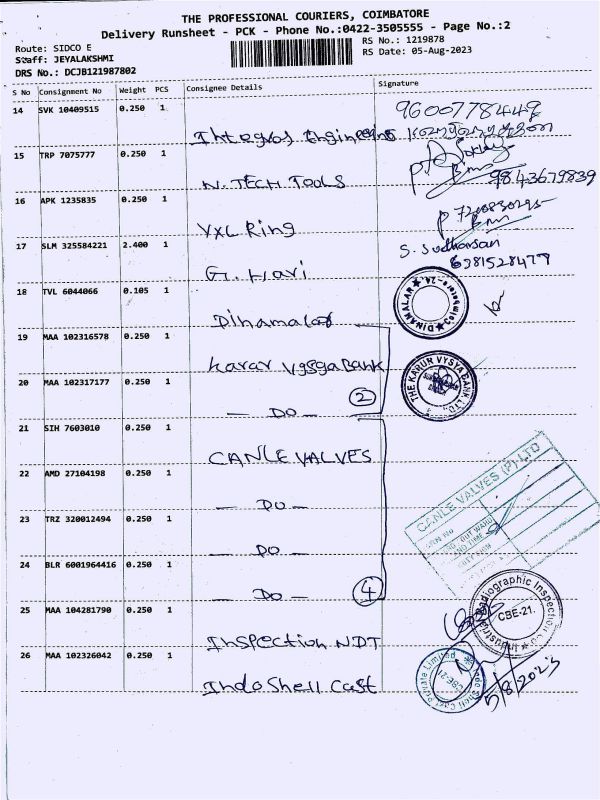 THE PROFESSIONAL COURIERS, COIMBATORE
Delivery Runsheet - PCK - Phone No.:0422-3505555 - Page No.:2
Route: SIDCO E
RS No.: 1219878
Staff: JEYALAKSHMI
RS Date: 05-Aug-2023
DRS No.: DCJB121987802
S No Consignment No Weight PCS Consignee Details Signature
14 SVK 10409515 0.250 1 Integros Engineering 9600778449
15 TRP 7075777 0.250 1 N. TECH TOOLS 9843679839
16 APK 1235835 0.250 1 VXL Ring
17 SLM 325584221 2.400 1 G. Hari S. Sudharsan 6381528477
18 TVL 6044066 0.105 1 Dinamalar DINAMALAR Coimbatore-24.
19 MAA 102316578 0.250 1 Karar Vysya Bank THE KARUR VYSYA BANK LTD.
20 MAA 102317177 0.250 1 — DO — 2
21 SIH 7603010 0.250 1 CANLE VALVES
22 AMD 27104198 0.250 1 — DO — CANLE VALVES (P) LTD
23 TRZ 320012494 0.250 1 — DO —
24 BLR 6001964416 0.250 1 — DO — 4
25 MAA 104281790 0.250 1 Inspection NDT Radiographic Inspection CBE-21.
26 MAA 102326042 0.250 1 Indo Shell Cast Indo Shell Cast Private Limited CBE-21 5/8/2023